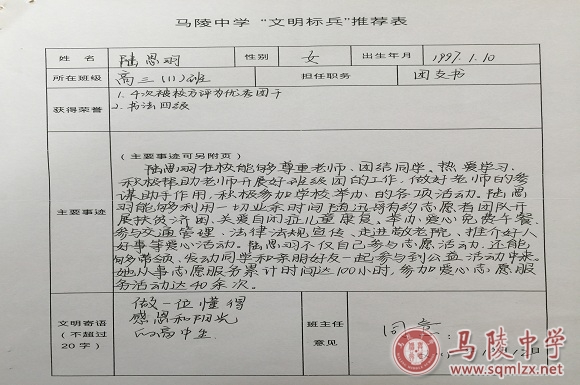 马陵中学“文明标兵”推荐表
姓名 陆思羽 性别 女 出生年月 1997.1.10
所在班级 高三(11)班 担任职务 团支书
获得荣誉
1. 4次被校方评为优秀团干
2. 书法四级
主要事迹
(主要事迹可另附页)
陆思羽在校能够尊重老师、团结同学。热爱学习,
积极帮助老师开展好班级团的工作,做好老师的参
谋助手作用,积极参加学校举办的各项活动。陆思
羽能够利用一切业余时间随宿迁 有约志愿者团队开
展扶贫济困、关爱自闭症儿童康复、举办爱心免费午餐、
参与交通管理、法律法规宣传、走进敬老院、推介好人
好事等爱心活动。陆思羽不仅自己参与志愿活动,还能
够带动、发动同学和亲朋好友一起参与到公益活动中来。
她从事志愿服务累计时间达100小时,参加爱心志愿服
务活动达40余次。
文明寄语
(不超过
20字)
做一位懂得
感恩和阳光
的高中生
班主任
意见
同意.
马陵中学
www.sqmlzx.net